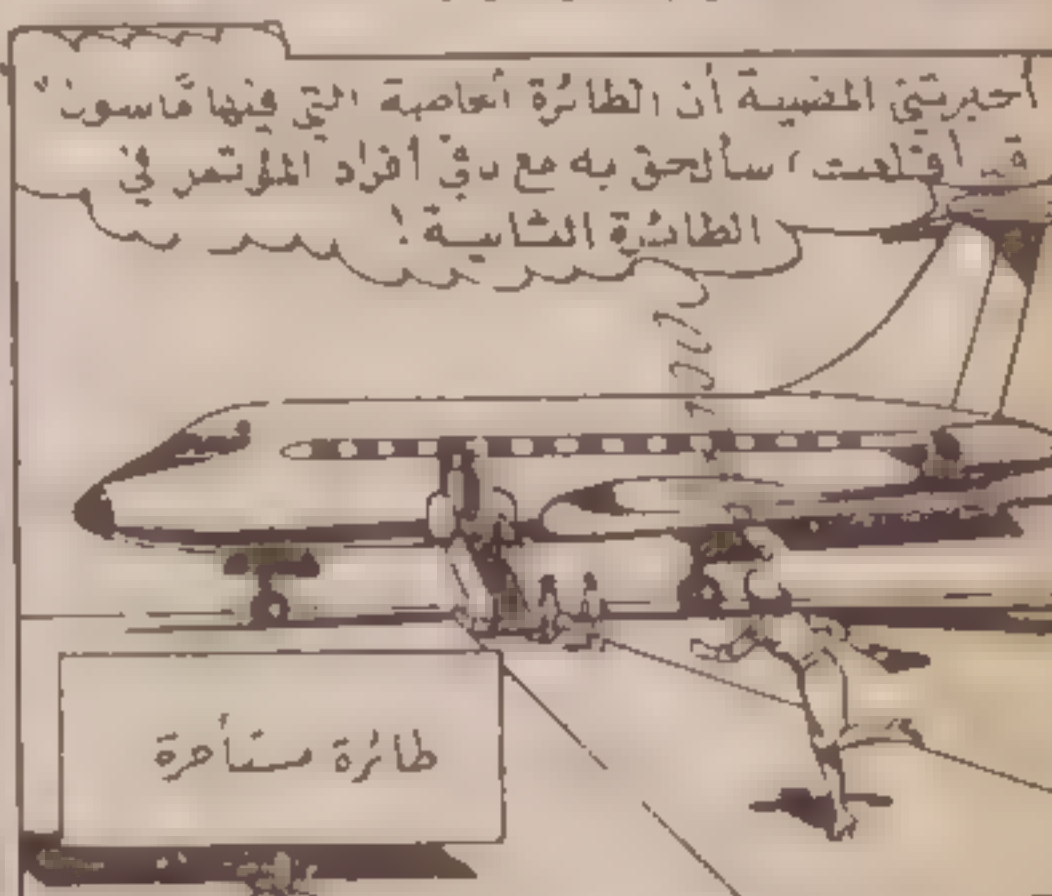 أخبرتني المضيفة أن الطائرة الخاصة التي فيها ماسون
قد أقلعت، سألحق به مع باقي أفراد المؤتمر في
الطائرة الثانية!
طائرة مستأجرة